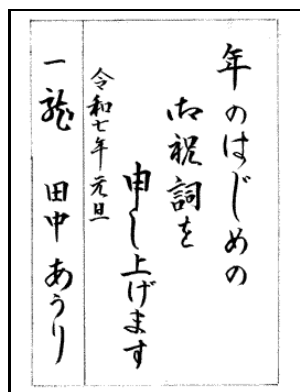 年のはじめの
御祝詞を
申し上げます
令和七年元旦
一龍 田中あうり